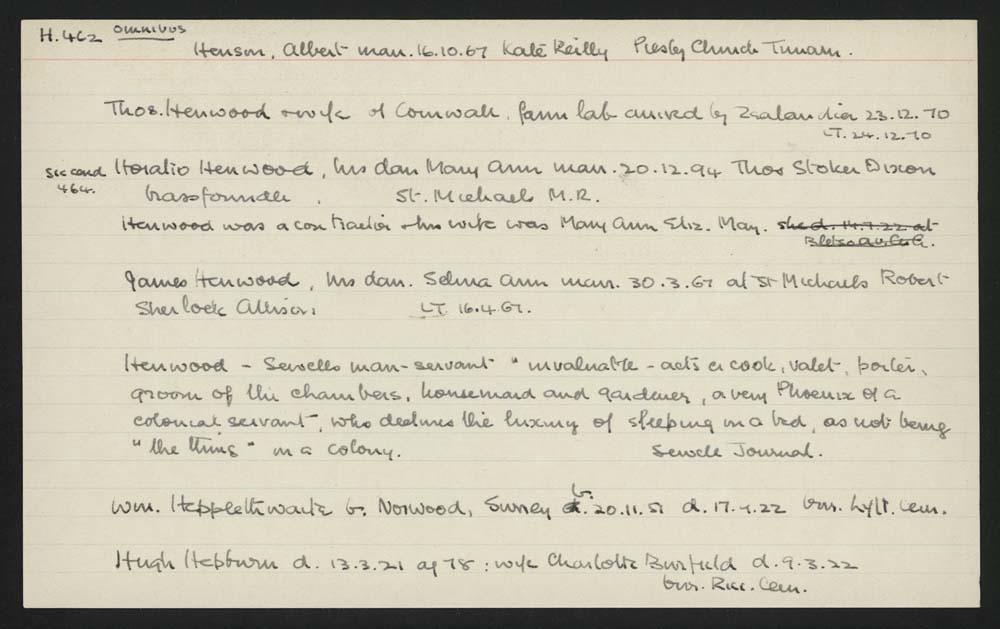 H.462 omnibus
Henson, Albert marr. 16.10.67 Kate Reilly Presby Church Tuam.
Thos. Henwood + wife of Cornwall, farm lab arrived by Zealandia 23.12.70
LT. 24.12.70
see card 464.
Horatio Henwood, his dau Mary Ann marr. 20.12.94 Thos Stoker Dixon
brassfounder, St. Michaels M.R.
Henwood was a contractor + his wife was Mary Ann Eliz. May. she d. 14.7.22 at
James Henwood, his dau. Selina Ann marr. 30.3.67 at St Michaels Robert
Sherlock Allison LT. 16.4.67.
Henwood - Sewells man-servant "invaluable - acts as cook, valet, porter,
groom of the chambers, housemaid and gardener, a very Phoenix of a
colonial servant", who declines the luxury of sleeping in a bed, as not being
"the thing" in a colony. Sewell Journal.
Wm. Hepplethwaite b. Norwood, Surrey b. 20.11.51 d. 17.4.22 bur. Lytt. cem.
Hugh Hepburn d. 13.3.21 ag 78 : wife Charlotte Burfield d. 9.3.22
bur. Ricc. Cem.